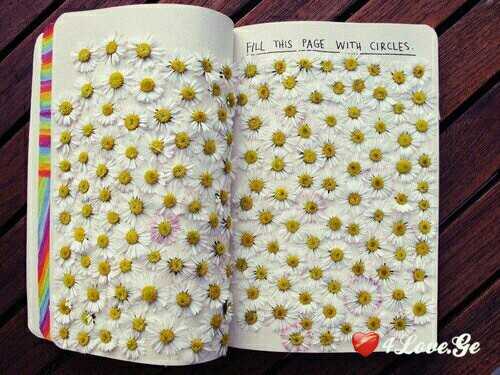 FILL THIS PAGE WITH CIRCLES.
4Love.Ge